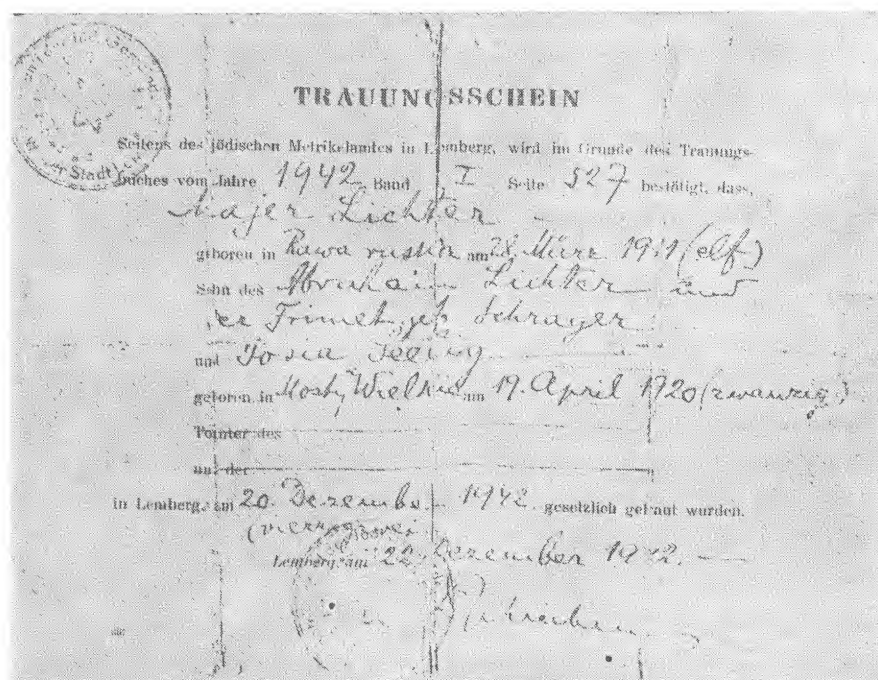 TRAUUNGSSCHEIN
Seitens des jüdischen Metrikelamtes in Lemberg, wird im Grunde des Trauungs-
buches vom Jahre 1942 Band I Seite 527 bestätigt, dass,
Majer Lichter
geboren in Rawa ruska am 28. März 1911 (elf)
Sohn des Abraham Lichter und
der geb. Schrager
und Tosia
geboren in Mosty Wielkie am 19. April 1920 (zwanzig)
Tochter des
und der
in Lemberg, am 20. Dezember 1942 gesetzlich getraut wurden.
(vierzigzwei
Lemberg, am 22. Dezember 1942. —